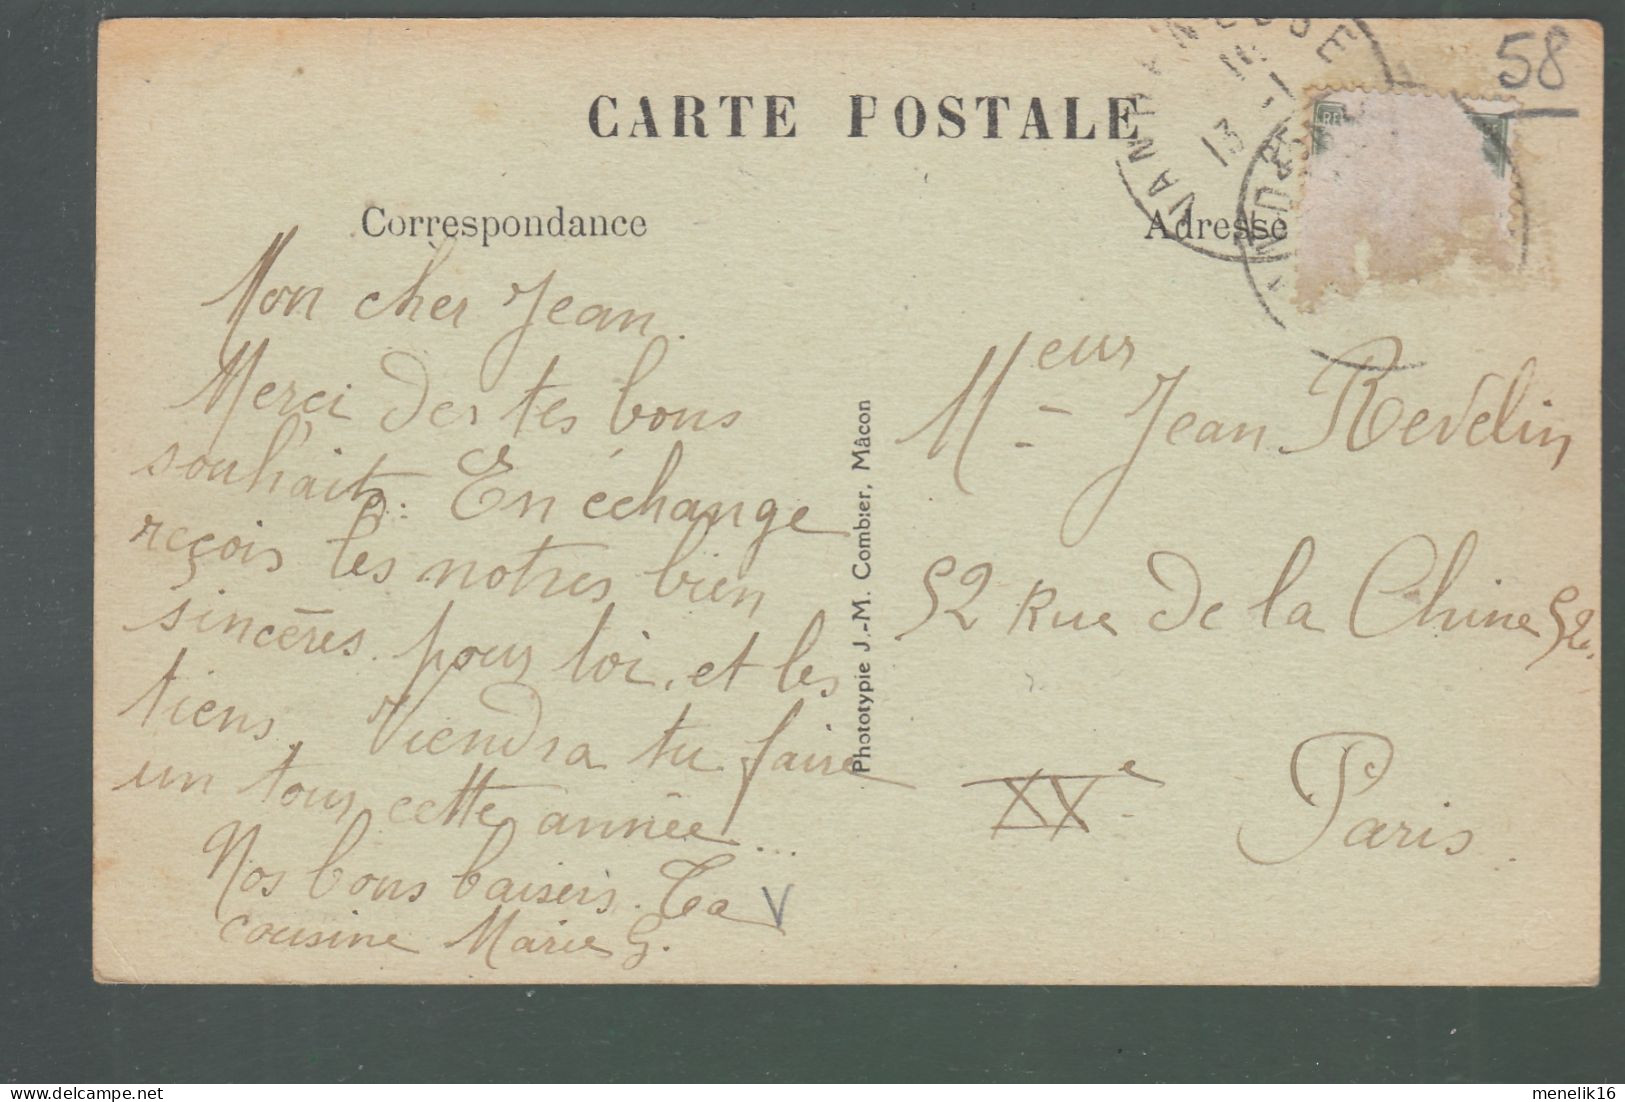 58
CARTE POSTALE
Correspondance
Adresse
Mon cher Jean.
Merci de tes bons
souhaits. En échange
reçois les notres bien
sincères pour toi, et les
tiens. Viendra tu faire
un tour cette année...
Nos bons baisers. Ta
cousine Marie G.
Phototypie J.-M. Combier, Mâcon
Mr eur Jean Revelin
52 Rue de la Chine 52.
XXe Paris.
13 -1
menelik16